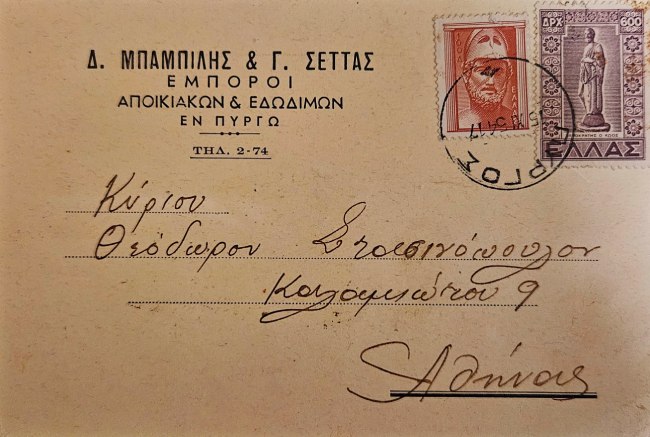 Δ. ΜΠΑΜΠΙΛΗΣ & Γ. ΣΕΤΤΑΣ
ΕΜΠΟΡΟΙ
ΑΠΟΙΚΙΑΚΩΝ & ΕΔΩΔΙΜΩΝ
ΕΝ ΠΥΡΓΩ
ΤΗΛ. 2-74
ΔΡΧ 600
ΕΛΛΑΣ
ΠΥΡΓΟΣ
Κύριον
Θεόδωρον Στασινόπουλον
Καλαμιώτου 9
Αθήνας